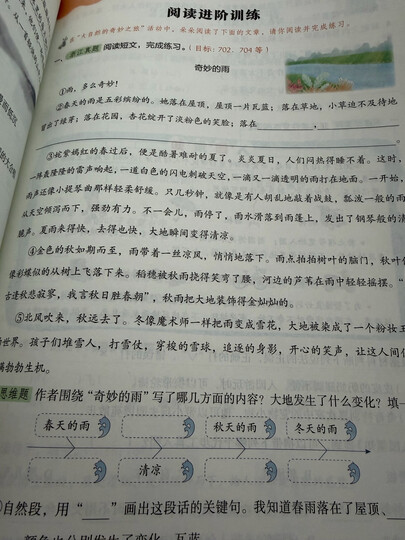 阅读进阶训练
在“大自然的奇妙之旅”活动中，朵朵阅读了下面的文章，请你阅读并完成练习。
一、浙江真题 阅读短文，完成练习。（目标：702．704 等）
奇妙的雨
①雨，多么奇妙！
②春天的雨是五彩缤纷的。她落在屋顶，屋顶一片瓦蓝；落在草地，小草迫不及待地
冒出了绿芽；落在花园，杏花绽开了淡粉色的笑脸；落在
，
③姹紫嫣红的春过后，便是酷暑难耐的夏了。炎炎夏日，人们闷热得睡不着。这时，
一阵轰隆隆的雷声响起，一道白色的闪电刺破天空，一滴又一滴透明的雨打在地面。一开始，
雨声还像小提琴曲那样轻柔舒缓。只几秒钟，就像是有人胡乱地敲着战鼓，瓢泼一般的雨
从天空倾泻而下，强劲有力。不一会儿，雨停了，雨水滑落到雨蓬上，发出了钢琴般的清
脆声。夏雨来得快，去得也快，大地瞬间变得清凉。
④金色的秋如期而至，雨带着一丝凉风，悄悄地落下。雨点拍拍树叶的脑门，秋叶
像彩蝶似的从树上飞落下来。稻穗被秋雨挠得笑弯了腰，河边的芦苇在雨中轻轻摇摆。“
古逢秋悲寂寥，我言秋日胜春朝”，秋雨把大地装饰得金灿灿的。
⑤北风吹来，秋远去了。冬像魔术师一样把雨变成雪花，大地被染成了一个粉妆玉
的世界。孩子们堆雪人，打雪仗，穿梭的雪球，追逐的身影，开心的笑声，让这人间
满勃勃生机。
思维题 作者围绕“奇妙的雨”写了哪几方面的内容？大地发生了什么变化？填一
春天的雨 秋天的雨 冬天的雨
清凉
自然段，用“____”画出这段话的关键句。我知道春雨落在了屋顶、